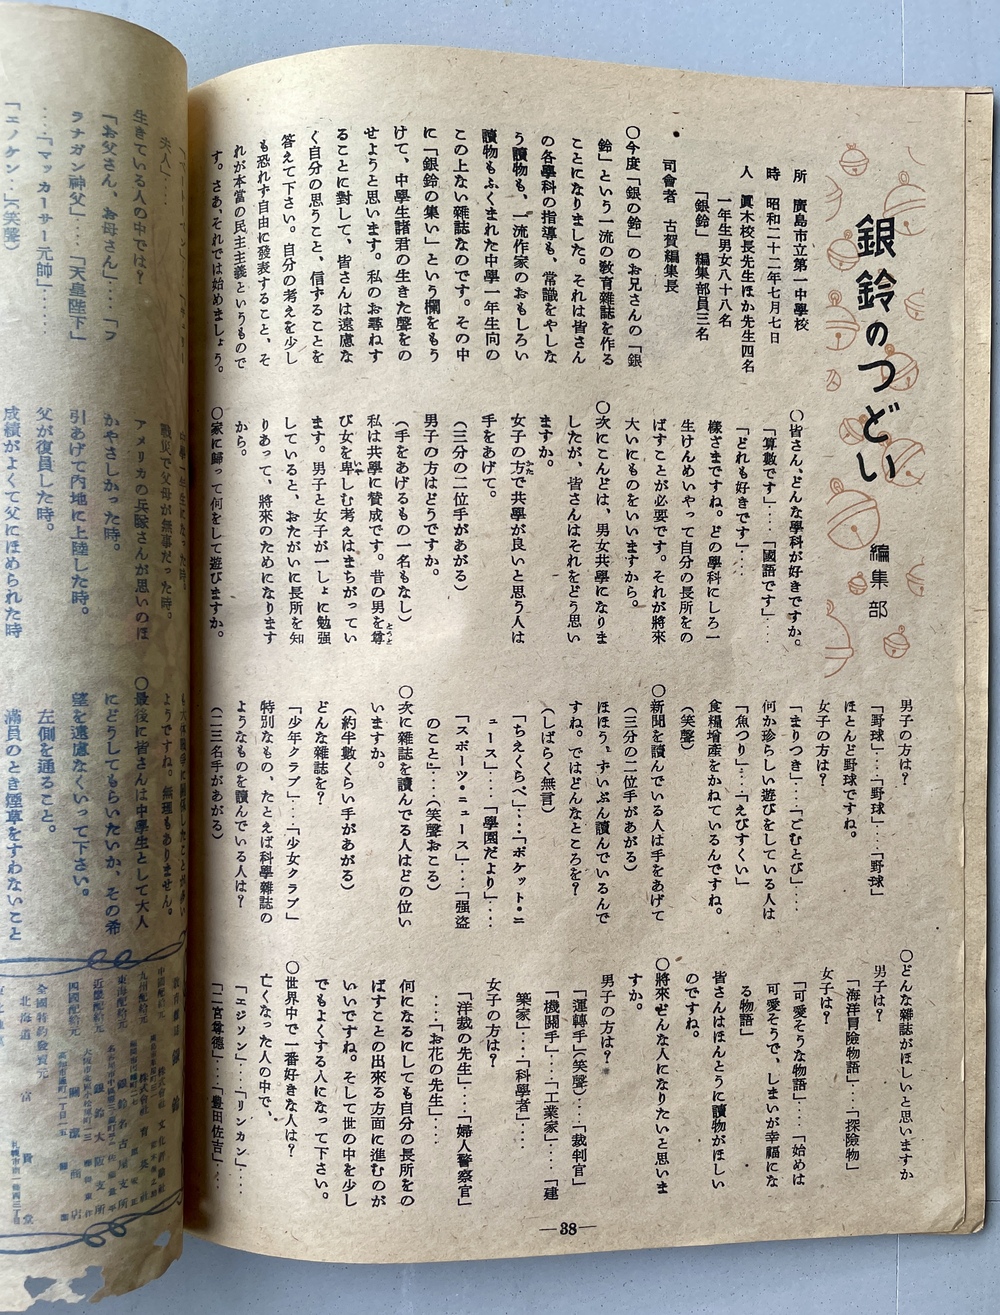 銀鈴のつどい
編集部
所　廣島市立第一中學校
時　昭和二十二年七月七日
人　眞木校長先生ほか先生四名
一年生男女八十八名
「銀鈴」編集部員三名
司會者　古賀編集長
〇今度「銀の鈴」のお兄さんの「銀
鈴」という一流の敎育雜誌を作る
ことになりました。それは皆さん
の各學科の指導も、常識をやしな
う讀物も、一流作家のおもしろい
讀物もふくまれた中學一年生向の
この上ない雜誌なのです。その中
に「銀鈴の集い」という欄をもう
けて、中學生諸君の生きた聲をの
せようと思います。私のお尋ねす
ることに對して、皆さんは遠慮な
く自分の思うこと、信ずることを
答えて下さい。自分の考えを少し
も恐れず自由に發表すること、そ
れが本當の民主主義というもので
す。さあ、それでは始めましょう。
〇皆さん、どんな學科が好きですか。
「算數です」‥‥「國語です」‥‥
「どれも好きです」‥‥
樣さまですね。どの學科にしろ一
生けんめいやって自分の長所をの
ばすことが必要です。それが將來
大いにものをいいますから。
〇次にこんどは、男女共學になりま
したが、皆さんはそれをどう思い
ますか。
女子の方かたで共學が良いと思う人は
手をあげて。
（三分の二位手があがる）
男子の方はどうですか。
（手をあげるもの一名もなし）
私は共學に賛成です。昔の男を尊とうと
び女を卑いやしむ考えはまちがってい
ます。男子と女子が一しょに勉强
していると、おたがいに長所を知
りあって、將來のためになります
から。
〇家に歸って何をして遊びますか。
男子の方は？
「野球」‥‥「野球」‥‥「野球」
ほとんど野球ですね。
女子の方は？
「まりつき」‥‥「ごむとび」‥‥
何か珍らしい遊びをしている人は
「魚つり」‥‥「えびすくい」
食糧增産をかねているんですね。
（笑聲）
〇新聞を讀んでいる人は手をあげて
（三分の二位手があがる）
ほほう。ずいぶん讀んでいるんで
すね。ではどんなところを？
（しばらく無言）
「ちえくらべ」‥‥「ポケット・ニ
ュース」‥‥「學園だより」‥‥
「スポーツ・ニュース」‥‥「强盗
のこと」‥‥（笑聲おこる）
〇次に雜誌を讀んでる人はどの位い
いますか。
（約半數くらい手があがる）
どんな雜誌を？
「少年クラブ」‥‥「少女クラブ」
特別なもの、たとえば科學雜誌の
ようなものを讀んでいる人は？
（二三名手があがる）
〇どんな雜誌がほしいと思いますか
男子は？
「海洋冒險物語」‥‥「探險物」
女子は？
「可愛そうな物語」‥‥「始めは
可愛そうで、しまいが幸福にな
る物語」
皆さんはほんとうに讀物がほしい
のですね。
〇將來どんな人になりたいと思いま
すか。
男子の方は？
「運轉手」（笑聲）‥‥「裁判官」
「機關手」‥‥「工業家」‥‥「建
築家」‥‥「科學者」‥‥
女子の方は？
「洋裁の先生」‥‥「婦人警察官」
‥‥「お花の先生」‥‥
何になるにしても自分の長所をの
ばすことの出來る方面に進むのが
いいですね。そして世の中を少し
でもよくする人になって下さい。
〇世界中で一番好きな人は？
亡くなった人の中で、
「エジソン」‥‥「リンカン」‥‥
「二宮尊德」‥‥「豊田佐吉」‥‥
―38―
夫人‥‥
生きている人の中では？
「お父さん、お母さん」‥‥「フ
ラナガン神父」‥‥「天皇陛下」
‥‥「マッカーサー元帥」‥‥
「エノケン‥」（笑聲）
戰災で父母が無事だった時。
アメリカの兵隊さんが思いのほ
かやさしかった時。
引あげて内地に上陸した時。
父が復員した時。
成績がよくて父にほめられた時
ようですね。無理もありません。
〇最後に皆さんは中學生として大人
にどうしてもらいたいか、その希
望を遠慮なくいって下さい。
左側を通ること。
滿員のとき煙草をすわないこと
九州配給元
東海配給元
近畿配給元
四國配給元
全國特約發賣元
北海道　富貴堂